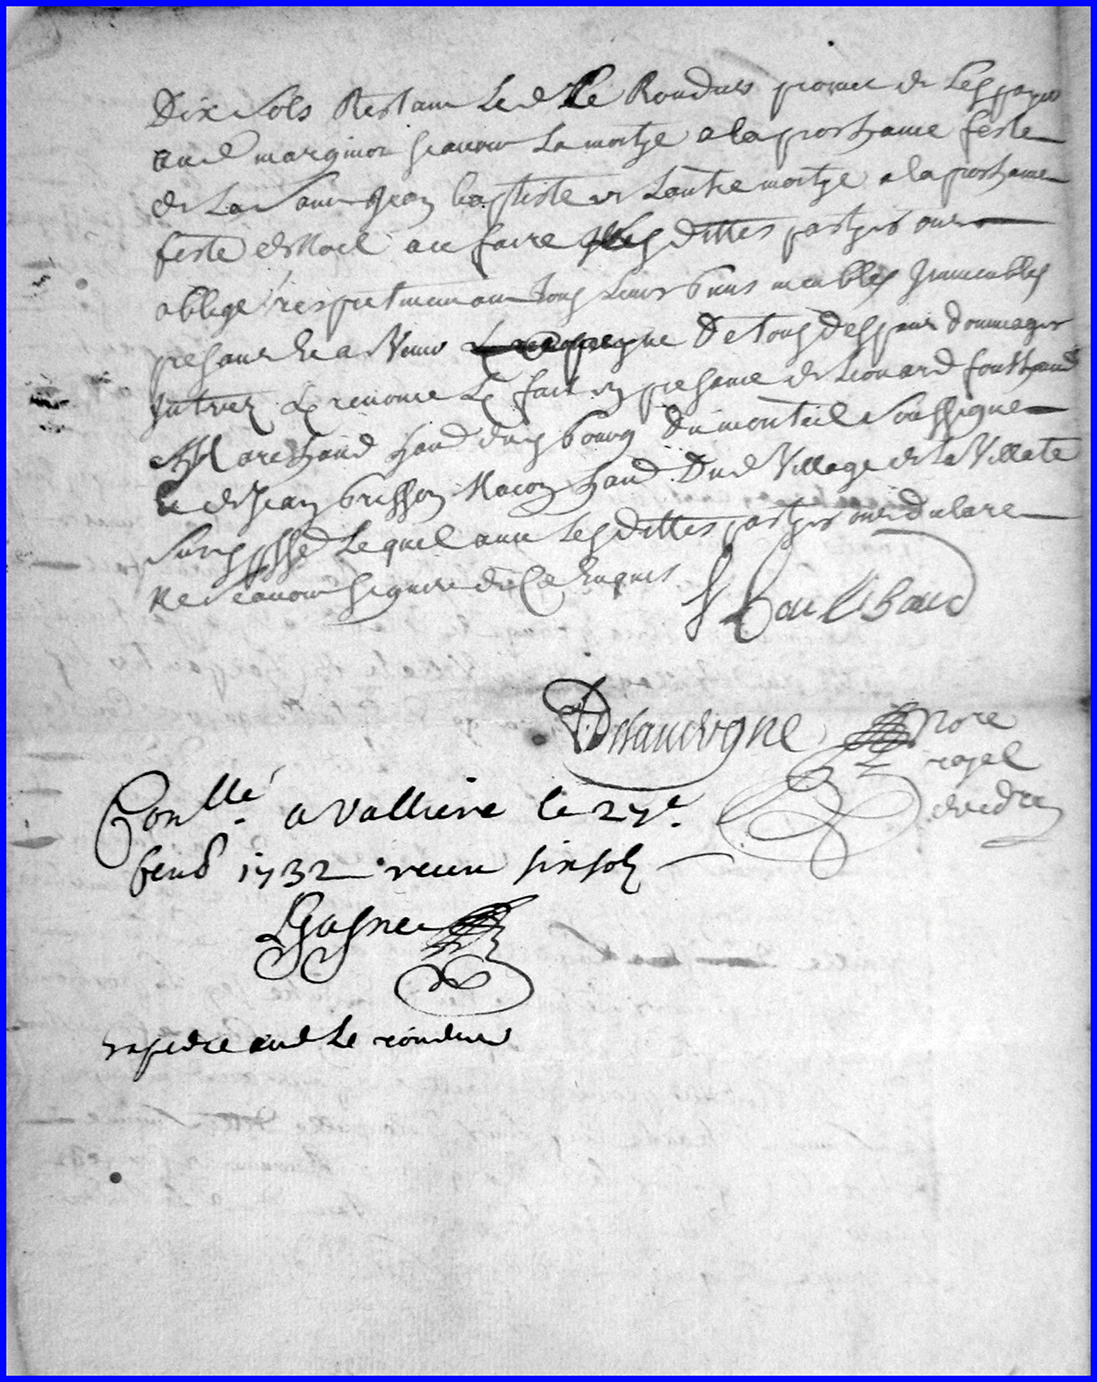 Dix sols Restant Led Le Rondus promet de Les payer
aud marginon jeanne La moitye a la prochaine feste
de La Saint Jean baptiste et Lautre moitye a la prochaine
feste de Noel a ce faire Lesdittes partyes ont
oblige respectivement Tous Leurs biens meubles Jmmeubles
presants et a Venir peyne De tous despans dommages
Jnterez et renonce Et fait en presance de Leonard
Marchand du bourg Du monteil Soussigne
et de Jean brisson Macon Dud Village de La Villate
Lequel avec Lesdittes partyes ont declare
Ne Scavoir signer de Ce Enquis
Delauvergne Nore
royel
Conllé a Valliere le 27e
1732 receu six sols
expedie aud Le rondus